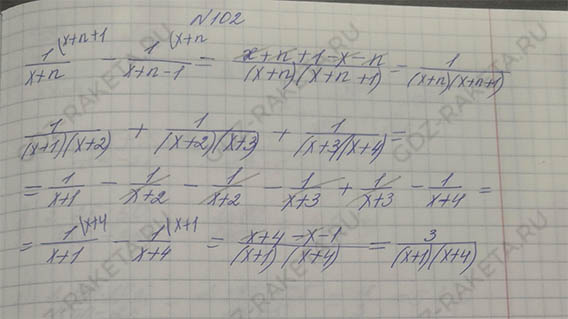 N102
1/(x+n) \x+n+1 - 1/(x+n-1) \x+n = (x+n+1-x-n)/((x+n)(x+n+1)) = 1/((x+n)(x+n+1))
1/((x+1)(x+2)) + 1/((x+2)(x+3)) + 1/((x+3)(x+4)) =
= 1/(x+1) - 1/(x+2) - 1/(x+2) - 1/(x+3) + 1/(x+3) - 1/(x+4) =
= 1/(x+1) \x+4 - 1/(x+4) \x+1 = (x+4-x-1)/((x+1)(x+4)) = 3/((x+1)(x+4))
GDZ-RAKETA.RU